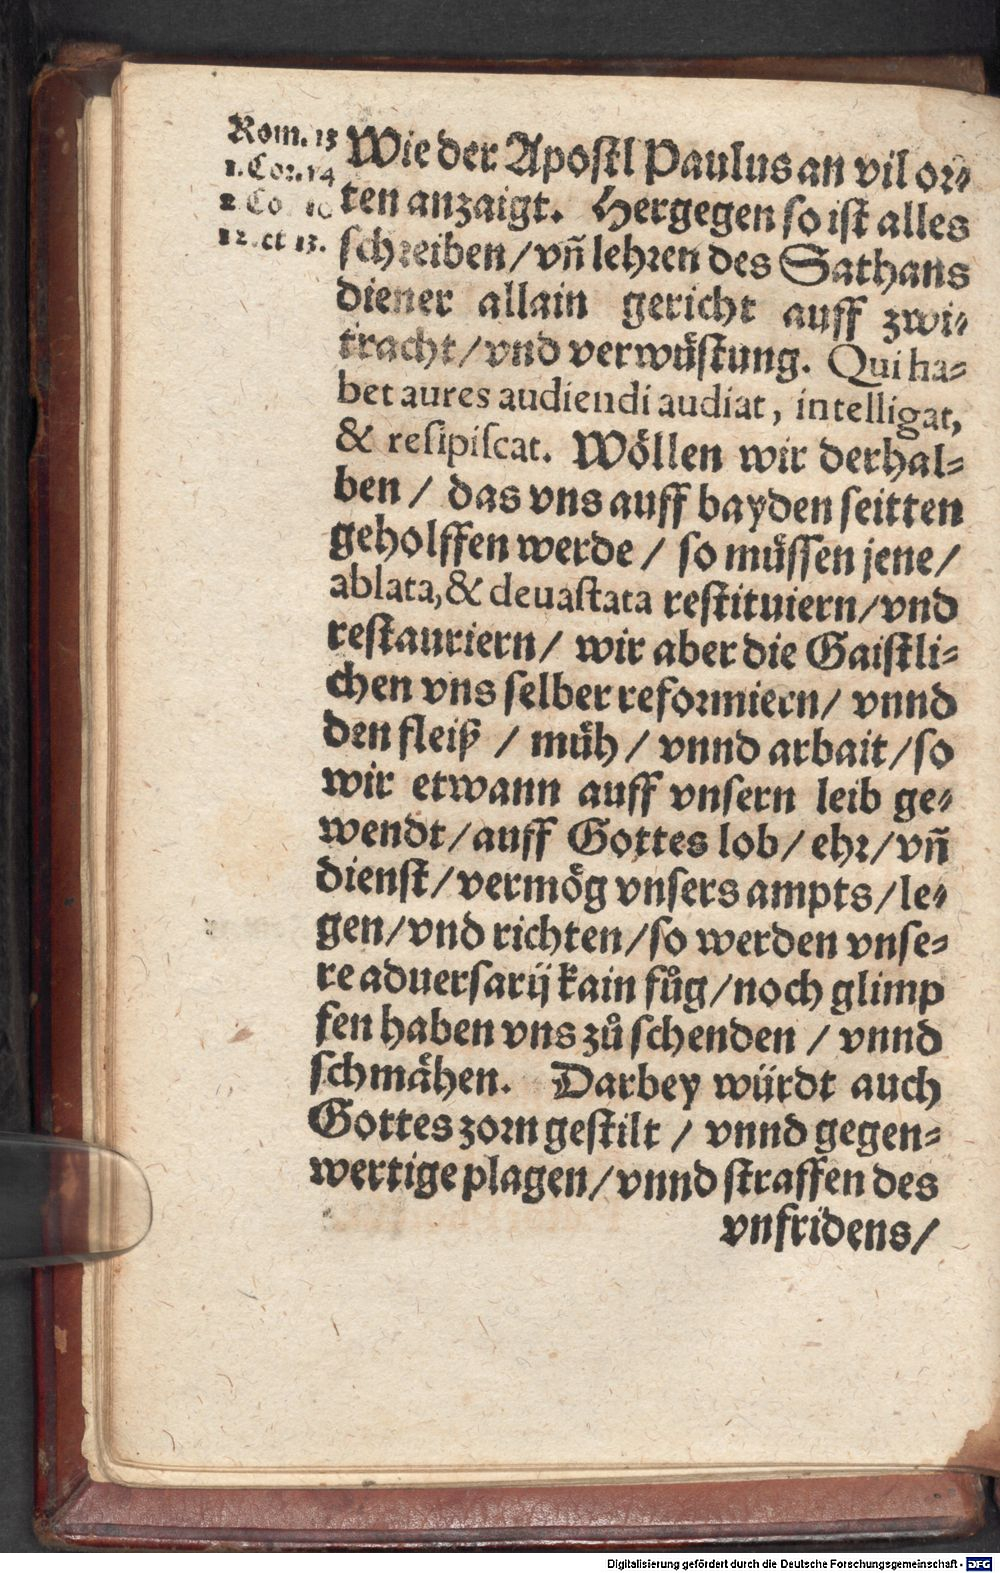 Rom. 13
1. Cor. 14
2 Co 10
12. et 13.
Wie der Apostl Paulus an vil or⸗
ten anzaigt. Hergegen so ist alles
schreiben / vñ lehren des Sathans
diener allain gericht auff zwi⸗
tracht / vnd verwüstung. Qui ha-
bet aures audiendi audiat, intelligat,
& resipiscat. Wöllen wir derhal⸗
ben / das vns auff bayden seitten
geholffen werde / so müssen jene /
ablata, & deuastata restituiern / vnd
restauriern / wir aber die Gaistli⸗
chen vns selber reformiern / vnnd
den fleiß / müh / vnnd arbait / so
wir etwann auff vnsern leib ge⸗
wendt / auff Gottes lob / ehr / vñ
dienst / vermög vnsers ampts / le⸗
gen / vnd richten / so werden vnse⸗
re aduersarij kain fůg / noch glimp
fen haben vns zů schenden / vnnd
schmähen. Darbey würdt auch
Gottes zorn gestilt / vnnd gegen⸗
wertige plagen / vnnd straffen des
vnfridens /
Digitalisierung gefördert durch die Deutsche Forschungsgemeinschaft - DFG